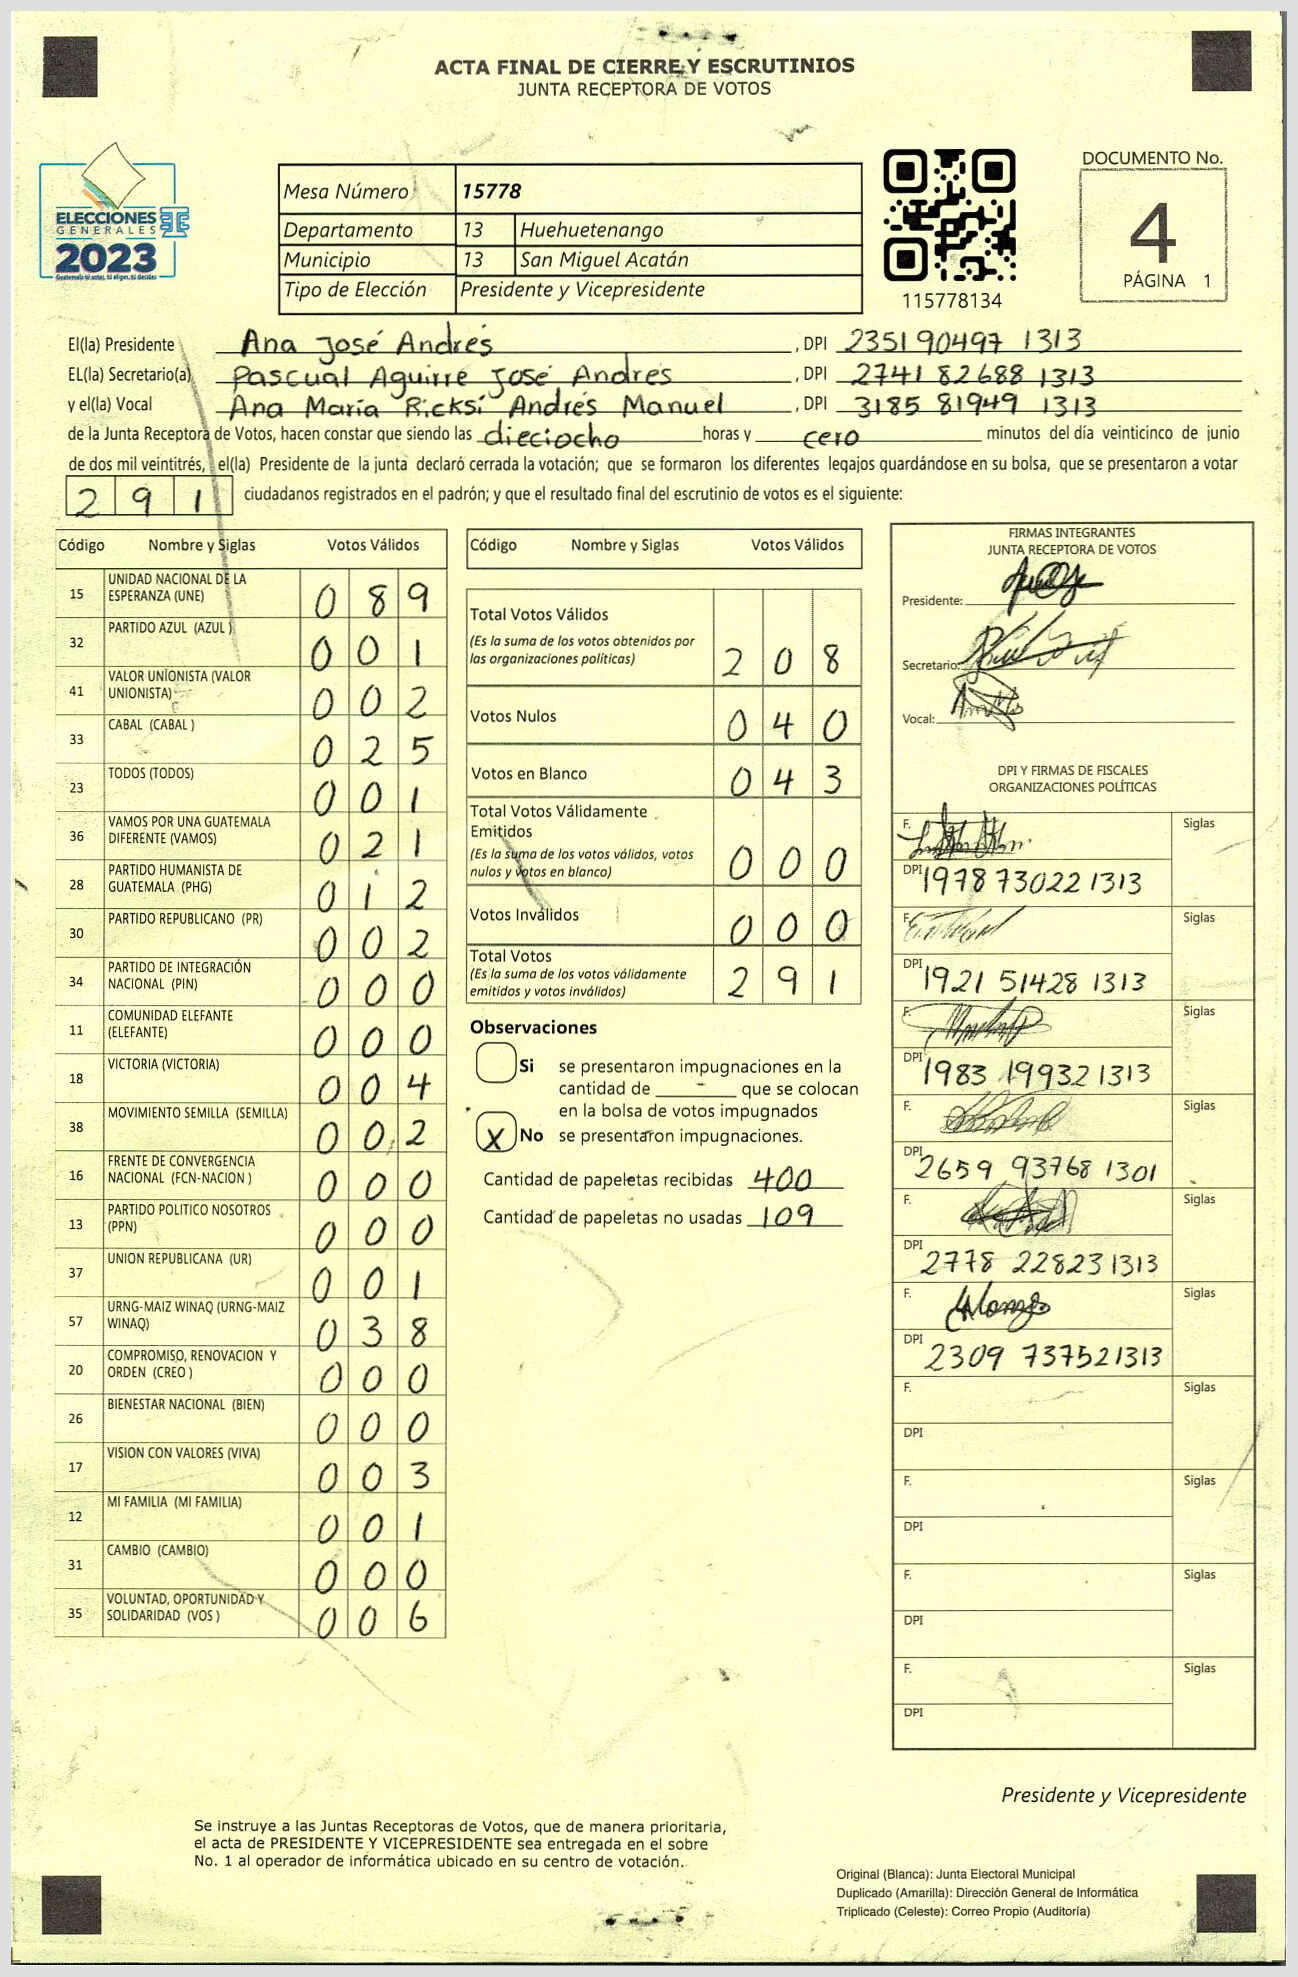 ACTA FINAL DE CIERRE Y ESCRUTINIOS
JUNTA RECEPTORA DE VOTOS
ELECCIONES
GENERALES
2023
Guatemala tú votas, tú eliges, tú decides
Mesa Número 15778
Departamento 13 Huehuetenango
Municipio 13 San Miguel Acatán
Tipo de Elección Presidente y Vicepresidente
115778134
DOCUMENTO No.
4
PÁGINA 1
El(la) Presidente Ana José Andrés , DPI 2351 90497 1313
EL(la) Secretario(a) Pascual Aguirre José Andrés , DPI 2741 82688 1313
y el(la) Vocal Ana María Ricksi Andrés Manuel , DPI 3185 81949 1313
de la Junta Receptora de Votos, hacen constar que siendo las dieciocho horas y cero minutos del día veinticinco de junio
de dos mil veintitrés, el(la) Presidente de la junta declaró cerrada la votación; que se formaron los diferentes legajos guardándose en su bolsa, que se presentaron a votar
2 9 1 ciudadanos registrados en el padrón; y que el resultado final del escrutinio de votos es el siguiente:
Código Nombre y Siglas Votos Válidos
15 UNIDAD NACIONAL DE LA
ESPERANZA (UNE) 0 8 9
32 PARTIDO AZUL (AZUL ) 0 0 1
41 VALOR UNIONISTA (VALOR
UNIONISTA) 0 0 2
33 CABAL (CABAL ) 0 2 5
23 TODOS (TODOS) 0 0 1
36 VAMOS POR UNA GUATEMALA
DIFERENTE (VAMOS) 0 2 1
28 PARTIDO HUMANISTA DE
GUATEMALA (PHG) 0 1 2
30 PARTIDO REPUBLICANO (PR) 0 0 2
34 PARTIDO DE INTEGRACIÓN
NACIONAL (PIN) 0 0 0
11 COMUNIDAD ELEFANTE
(ELEFANTE) 0 0 0
18 VICTORIA (VICTORIA) 0 0 4
38 MOVIMIENTO SEMILLA (SEMILLA) 0 0 2
16 FRENTE DE CONVERGENCIA
NACIONAL (FCN-NACION ) 0 0 0
13 PARTIDO POLITICO NOSOTROS
(PPN) 0 0 0
37 UNION REPUBLICANA (UR) 0 0 1
57 URNG-MAIZ WINAQ (URNG-MAIZ
WINAQ) 0 3 8
20 COMPROMISO, RENOVACION Y
ORDEN (CREO ) 0 0 0
26 BIENESTAR NACIONAL (BIEN) 0 0 0
17 VISION CON VALORES (VIVA) 0 0 3
12 MI FAMILIA (MI FAMILIA) 0 0 1
31 CAMBIO (CAMBIO) 0 0 0
35 VOLUNTAD, OPORTUNIDAD Y
SOLIDARIDAD (VOS ) 0 0 6
Código Nombre y Siglas Votos Válidos
Total Votos Válidos
(Es la suma de los votos obtenidos por
las organizaciones políticas) 2 0 8
Votos Nulos 0 4 0
Votos en Blanco 0 4 3
Total Votos Válidamente
Emitidos
(Es la suma de los votos válidos, votos
nulos y votos en blanco) 0 0 0
Votos Inválidos 0 0 0
Total Votos
(Es la suma de los votos válidamente
emitidos y votos inválidos) 2 9 1
Observaciones
Si se presentaron impugnaciones en la
cantidad de - que se colocan
en la bolsa de votos impugnados
X No se presentaron impugnaciones.
Cantidad de papeletas recibidas 400
Cantidad de papeletas no usadas 109
FIRMAS INTEGRANTES
JUNTA RECEPTORA DE VOTOS
Presidente:
Secretario:
Vocal:
DPI Y FIRMAS DE FISCALES
ORGANIZACIONES POLÍTICAS
F. Siglas
DPI 1978 73022 1313
F. Siglas
DPI 1921 51428 1313
F. Siglas
DPI 1983 19932 1313
F. Siglas
DPI 2659 93768 1301
F. Siglas
DPI 2778 22823 1313
F. Siglas
DPI 2309 73752 1313
F. Siglas
DPI
F. Siglas
DPI
F. Siglas
DPI
F. Siglas
DPI
Presidente y Vicepresidente
Se instruye a las Juntas Receptoras de Votos, que de manera prioritaria,
el acta de PRESIDENTE Y VICEPRESIDENTE sea entregada en el sobre
No. 1 al operador de informática ubicado en su centro de votación.
Original (Blanca): Junta Electoral Municipal
Duplicado (Amarilla): Dirección General de Informática
Triplicado (Celeste): Correo Propio (Auditoría)